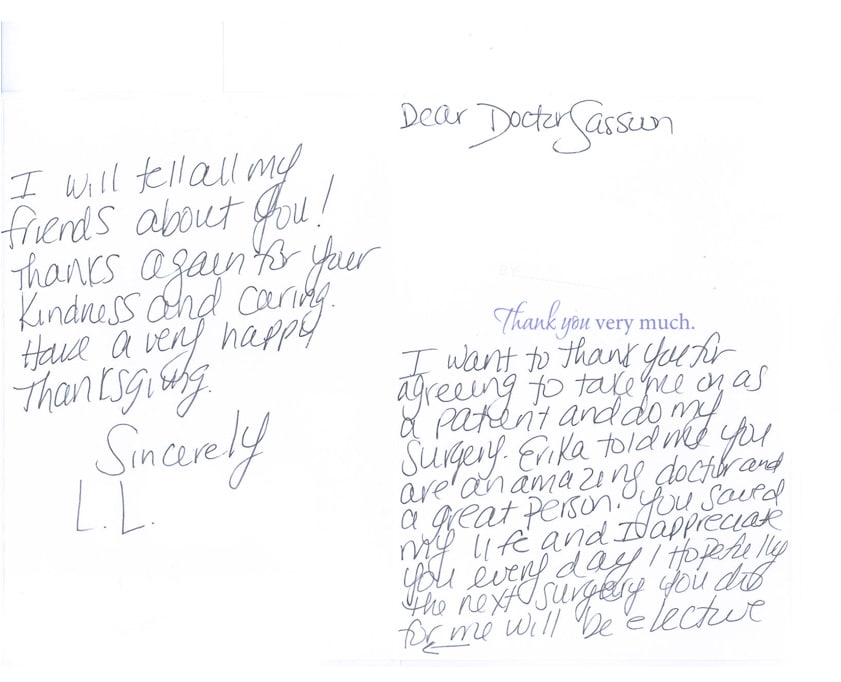 Dear Doctor Sassoon
Thank you very much.
I want to thank you for
agreeing to take me on as
a patient and do my
surgery. Erika told me you
are an amazing doctor and
a great person. You saved
my life and I appreciate
you every day! Hopefully
the next surgery you do
for me will be elective
I will tell all my
friends about you!
Thanks again for your
kindness and caring.
Have a very happy
Thanksgiving.
Sincerely
L.L.